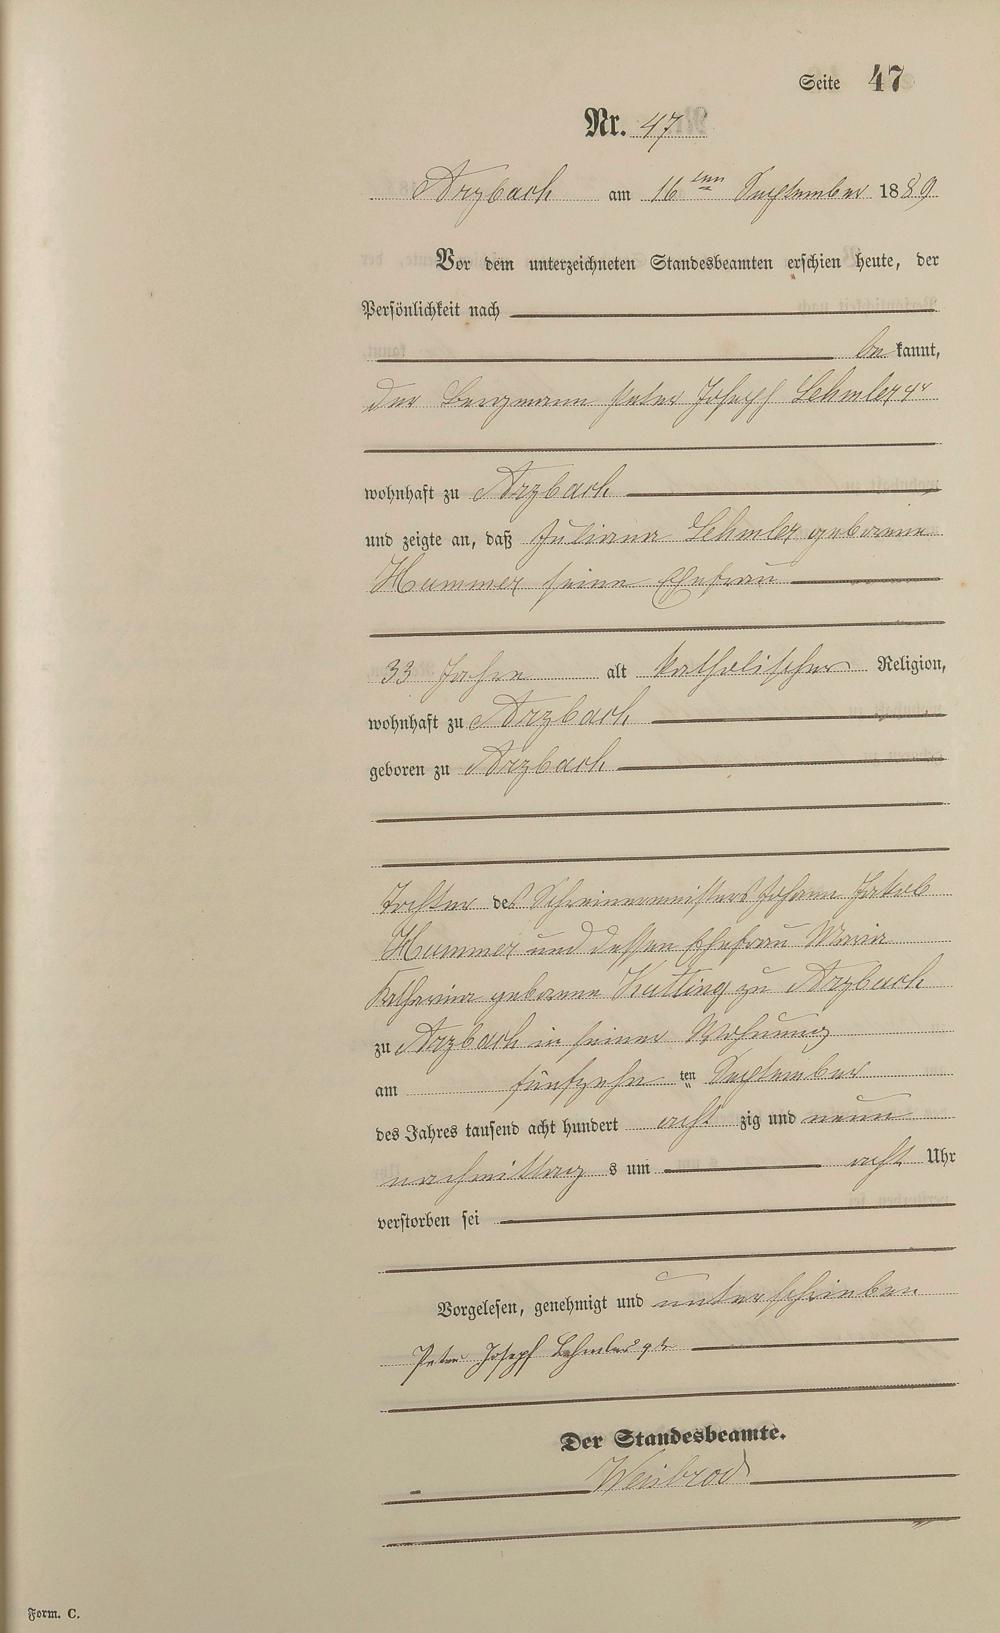 Seite 47
Nr. 47
Arzbach am 16ten September 1889
Vor dem unterzeichneten Standesbeamten erschien heute, der
Persönlichkeit nach
be kannt,
der Bergmann Peter Joseph Lehmler
wohnhaft zu Arzbach
und zeigte an, daß Juliana Lehmler geborene
Hammer seine Ehefrau
33 Jahre alt katholischer Religion,
wohnhaft zu Arzbach
geboren zu Arzbach
Tochter des Schreinermeisters Johann Jakob
Hammer und dessen Ehefrau Maria
Katharina geborene zu Arzbach
zu Arzbach in seiner Wohnung
am fünfzehn ten September
des Jahres tausend acht hundert acht zig und neun
nachmittag s um acht Uhr
verstorben sei
Vorgelesen, genehmigt und unterschrieben
Peter Joseph Lehmler
Der Standesbeamte.
Weisbrod
Form. C.